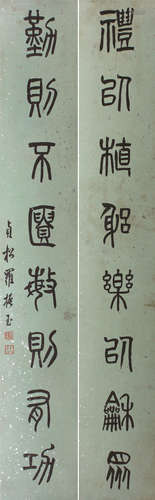 禮以植躬樂以龢眾
勤則不匱敏則有功
貞松羅振玉